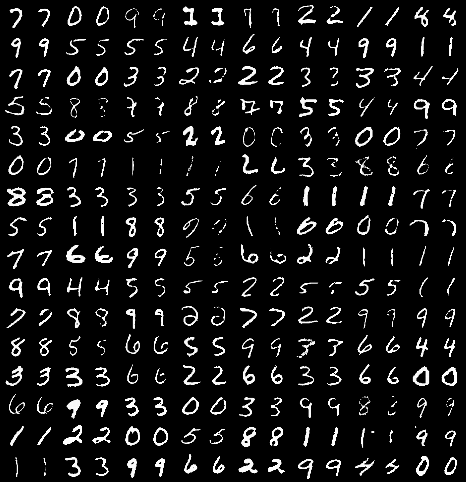 7 7 0 0 9 9 1 1 7 7 2 2 1 1 8 8
9 9 5 5 5 5 4 4 6 6 4 4 9 9 1 1
7 7 0 0 3 3 2 2 2 2 3 3 3 3 4 4
5 5 8 8 7 7 8 8 7 7 5 5 4 4 9 9
3 3 0 0 5 5 2 2 0 0 3 3 0 0 7 7
0 0 7 7 1 1 1 1 2 2 3 3 8 8 6 6
8 8 3 3 3 3 5 5 6 6 1 1 1 1 7 7
5 5 1 1 8 8 7 7 1 1 0 0 0 0 7 7
7 7 6 6 9 9 5 5 6 6 2 2 1 1 1 1
9 9 4 4 5 5 5 5 2 2 5 5 5 5 1 1
7 7 8 8 9 9 2 2 7 7 2 2 9 9 9 9
8 8 5 5 6 6 5 5 9 9 3 3 6 6 4 4
3 3 3 3 6 6 2 2 6 6 3 3 6 6 0 0
6 6 9 9 3 3 0 0 3 3 9 9 8 8 9 9
1 1 2 2 0 0 5 5 8 8 1 1 1 1 9 9
1 1 3 3 9 9 6 6 2 2 9 9 4 4 0 0